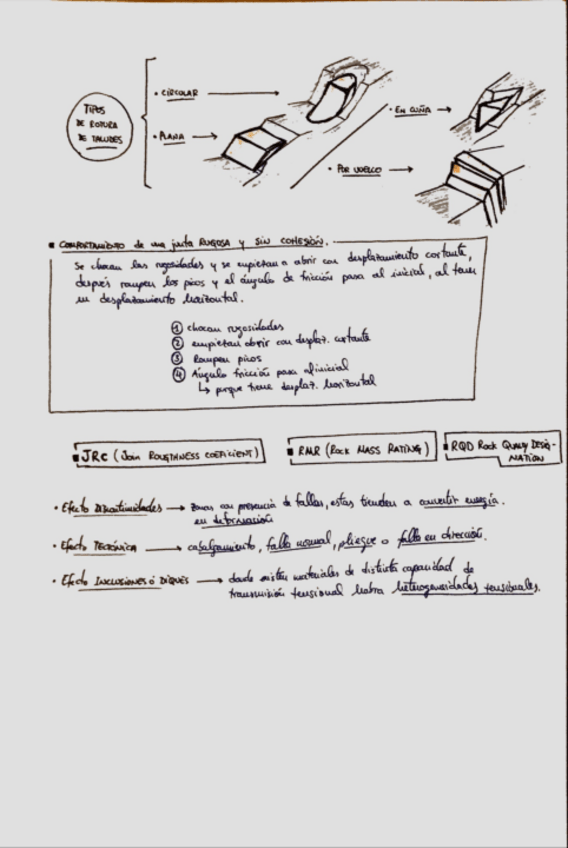 TIPOS
DE ROTURA
DE TALUDES
• CIRCULAR →
• PLANA →
• EN CUÑA →
• POR VUELCO →
▪ COMPORTAMIENTO de una junta RUGOSA y SIN COHESIÓN.
Se chocan las rugosidades y se empiezan a abrir con desplazamiento cortante,
después rompen los picos y el ángulo de fricción pasa al inicial, al tener
un desplazamiento horizontal.
① chocan rugosidades
② empiezan abrir con desplaz. cortante
③ Rompen picos
④ Ángulo fricción pasa al inicial
↳ porque tiene desplaz. horizontal
▪ JRC (Join ROUGTHNESS COEFICIENT)
▪ RMR (Rock MASS RATING)
▪ RQD Rock QUALITY DESIG-
NATION
• Efecto DISCONTINUIDADES → zonas con presencia de fallas, estas tienden a convertir energía
en deformación
• Efecto TECTÓNICA → cabalgamiento, falla normal, pliegue o falla en dirección.
• Efecto INCLUSIONES ó DIQUES → donde existen materiales de distinta capacidad de
transmisión tensional habra heterogeneidades tensionales.